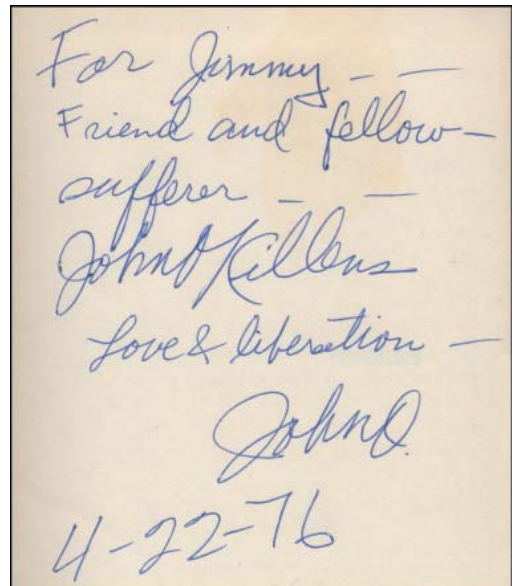 For Jimmy — —
Friend and fellow-
sufferer — —
John O Killens
Love & liberation —
John O.
4-22-76